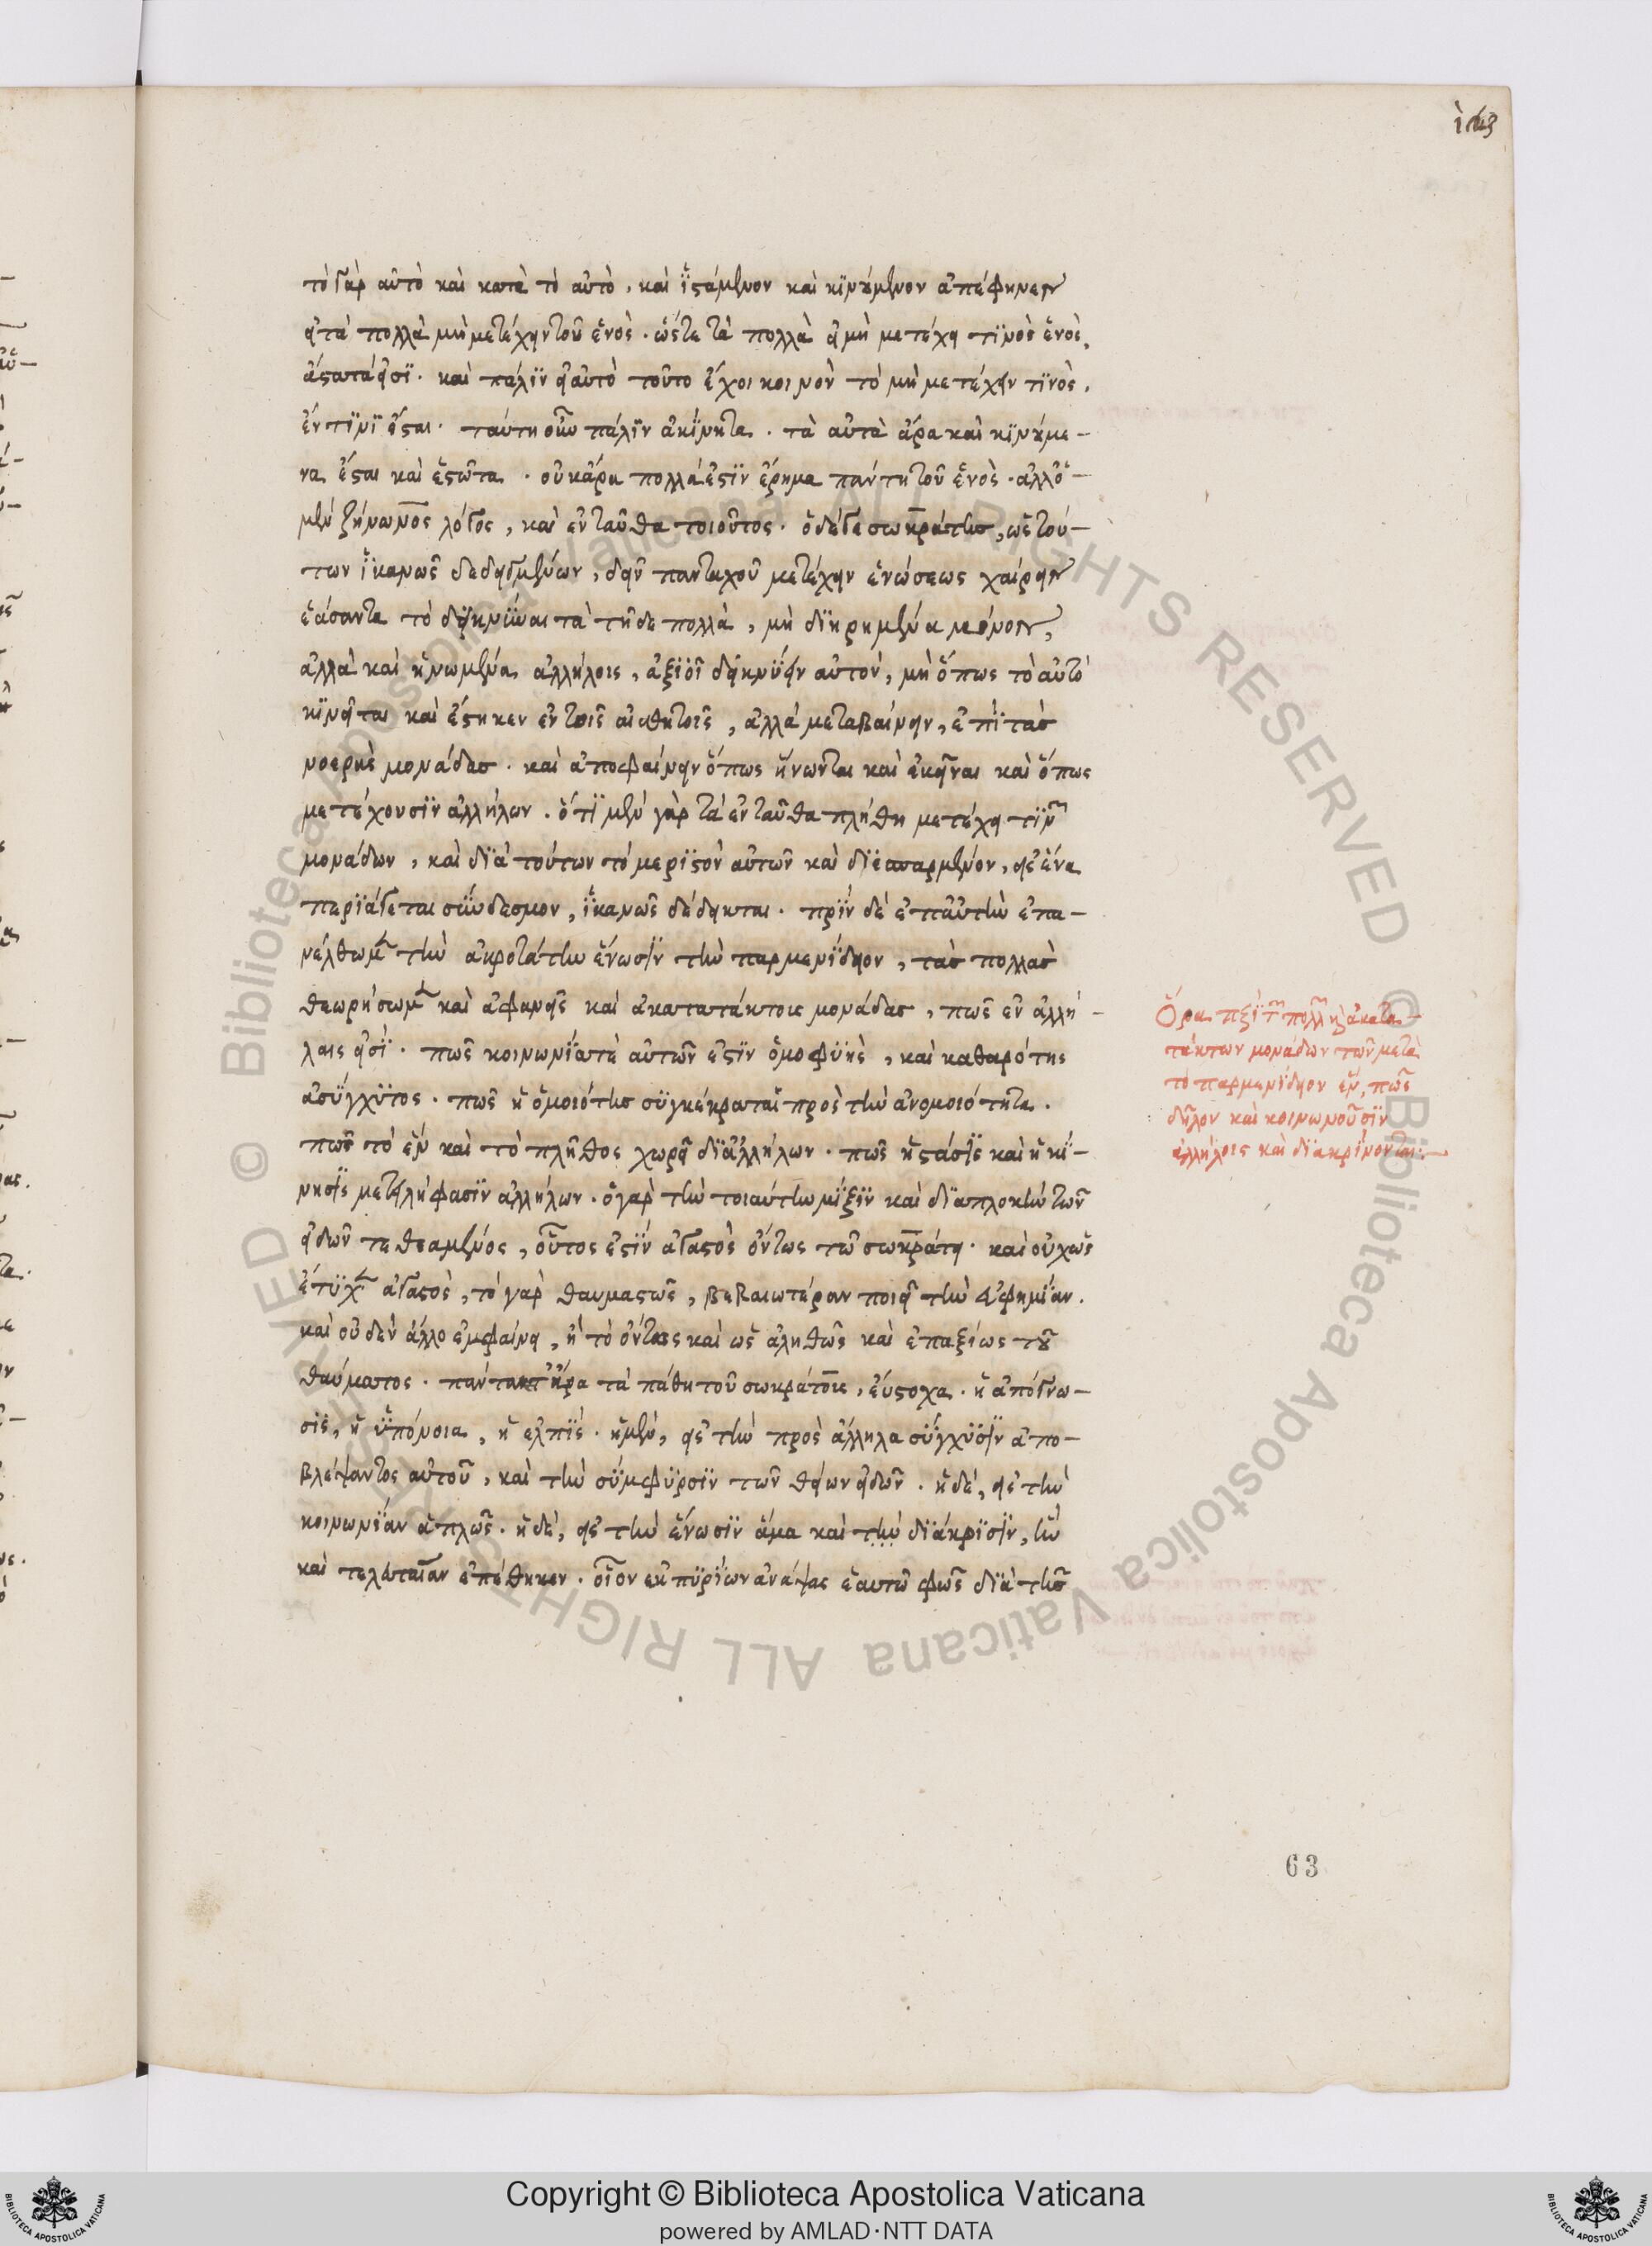 τὸ γὰρ αὐτὸ καὶ κατὰ τὸ αὐτὸ, καὶ ἱστάμενον καὶ κινούμενον ἀπέφηνεν
εἰ τὰ πολλὰ μὴ μετέχειν τοῦ ἑνός. ὥστε τὰ πολλὰ εἰ μὴ μετέχει τινὸς ἑνὸς,
ἄστατά εἰσι. καὶ πάλιν εἰ αὐτὸ τοῦτο ἔχοι κοινὸν τὸ μὴ μετέχειν τινὸς,
ἔν τινι ἔσται. ταύτη οὖν πάλιν ἀκίνητα. τὰ αὐτὰ ἄρα καὶ κινούμε-
να ἔσται καὶ ἑστῶτα. οὐκ ἄρα πολλά ἐστιν ἔρημα πάντη τοῦ ἑνός. ἀλλ' ὁ
μὲν ζήνωνος λόγος, καὶ ἐνταῦθα τοιοῦτος. ὁ δέ γε σωκράτης, ὡς τού-
των ἱκανῶς δεδειγμένων, δεῖν πανταχοῦ μετέχειν ἑνώσεως χαίρειν
ἐάσαντα τὸ δεικνύναι τὰ τῆδε πολλὰ, μὴ διῃρημένα μόνον,
ἀλλὰ καὶ ἡνωμένα ἀλλήλοις, ἀξιοῖ δεικνύειν αὐτὸν, μὴ ὅπως τὸ αὐτὸ
κινεῖται καὶ ἕστηκεν ἐν τοῖς αἰσθητοῖς, ἀλλὰ μεταβαίνειν, ἐπὶ τὰς
νοερὰς μονάδας. καὶ ἀποφαίνειν ὅπως ἥνωνται καὶ ἐκεῖναι καὶ ὅπως
μετέχουσιν ἀλλήλων. ὅτι μὲν γὰρ τὰ ἐνταῦθα πλήθη μετέχει τινῶν
μονάδων, καὶ διὰ τούτων τὸ μεριστὸν αὐτῶν καὶ διεσπαρμένον, εἰς ἕνα
περιάγεται σύνδεσμον, ἱκανῶς δέδεικται. πρὶν δὲ ἐπ' αὐτὴν ἐπα-
νέλθωμεν τὴν ἀκροτάτην ἕνωσιν τὴν παρμενίδειον, τὰς πολλὰς
θεωρήσωμεν καὶ ἀφανεῖς καὶ ἀκατατάκτους μονάδας, πῶς ἐν ἀλλή-
λαις εἰσί. πῶς κοινωνία τὲ αὐτῶν ἐστιν ὁμοφυὴς, καὶ καθαρότης
ἀσύγχυτος. πῶς ἡ ὁμοιότης συγκέκραται πρὸς τὴν ἀνομοιότητα.
πῶς τὸ ἓν καὶ τὸ πλῆθος χωρεῖ δι' ἀλλήλων. πῶς ἡ στάσις καὶ ἡ κί-
νησις μετειλήφασιν ἀλλήλων. ὁ γὰρ τὴν τοιαύτην μίξιν καὶ διαπλοκὴν τῶν
εἰδῶν τεθεαμένος, οὗτος ἐστὶν ἀγαστὸς ὄντως τῶ σωκράτει. καὶ οὐχ ὡς
ἔτυχεν ἀγαστὸς, τὸ γὰρ θαυμαστῶς, βεβαιωτέραν ποιεῖ τὴν εὐφημίαν.
καὶ οὐδὲν ἄλλο ἐμφαίνει, ἢ τὸ ὄντως καὶ ὡς ἀληθῶς καὶ ἐπαξίως τοῦ
θαύματος. τὰ πάθη τοῦ σωκράτους, εὔστοχα. ἡ ἀπόγνω-
σις, ἡ ὑπόνοια, ἡ ἐλπίς. ἡ μὲν, εἰς τὴν πρὸς ἄλληλα σύγχυσιν ἀπο-
βλέψαντος αὐτοῦ, καὶ τὴν σύμφυρσιν τῶν θείων εἰδῶν. ἡ δὲ, εἰς τὴν
κοινωνίαν ἁπλῶς. ἡ δὲ, εἰς τὴν ἕνωσιν ἅμα καὶ τὴν διάκρισιν, ἣν
καὶ τελευταίαν ἐπέθηκεν. οἷον ἐκ πυρίων ἀνάψας ἑαυτῶ φῶς διὰ τῆς
Ὅρα περὶ τῶν πολλῶν καὶ ἀκατα-
τάκτων μονάδων τῶν μετὰ
τὸ παρμενίδειον ἓν, πῶς
δῆλον καὶ κοινωνοῦσιν
ἀλλήλοις καὶ διακρίνονται:-
63
Copyright © Biblioteca Apostolica Vaticana
powered by AMLAD·NTT DATA